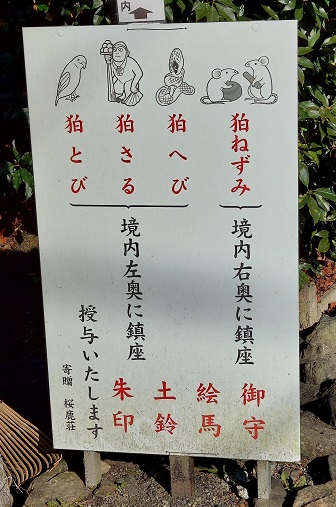 内
狛ねずみ
狛へび
狛さる
狛とび
境内右奥に鎮座
境内左奥に鎮座
御守
絵馬
土鈴
朱印
授与いたします
寄贈 桜鹿荘